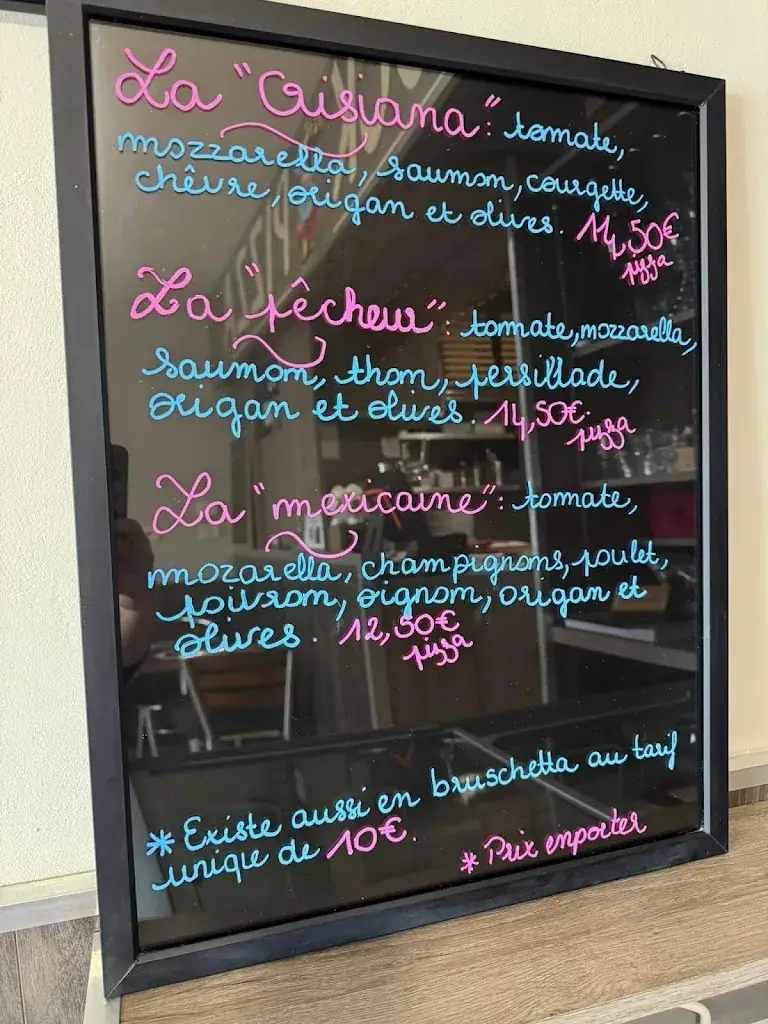 La "Crisiana": tomate,
mozzarella, saumon, courgette,
chêvre, origan et olives. 14,50€
pizza
La "pêcheur": tomate, mozzarella,
saumon, thon, persillade,
origan et olives. 14,50€.
pizza
La "mexicaine": tomate,
mozarella, champignons, poulet,
poivron, oignon, origan et
olives. 12,50€
pizza
* Existe aussi en bruschetta au tarif
unique de 10€.
* Prix emporter